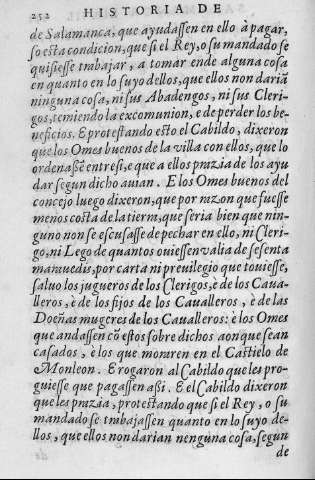 252 HISTORIA DE
de Salamanca, que ayudassen en ello à pagar,
so esta condicion, que si el Rey, o su mandado se
quisiesse trabajar, a tomar ende alguna cosa
en quanto en lo suyo dellos, que ellos non dariã
ninguna cosa, ni sus Abadengos, ni sus Cleri-
gos, temiendo la excomunion, e de perder los be-
neficios. E protestando esto el Cabildo, dixeron
que los Omes buenos de la villa con ellos, que lo
ordenasẽ entresi, e que a ellos prazia de los ayu
dar segun dicho auian. E los Omes buenos del
concejo luego dixeron, que por razon que fuesse
menos costa de la tierra, que seria bien que nin-
guno non se escusasse de pechar en ello, ni Cleri-
go, ni Lego de quantos ouiessen valia de sesenta
marauedis, por carta ni preuilegio que touiesse,
saluo los jugueros de los Clerigos, è de los Caua-
lleros, è de los fijos de los Caualleros, è de las
Doeñas mugeres de los Caualleros: è los Omes
que andassen cõ estos sobre dichos aonque sean
casados, e los que moraren en el Castielo de
Monleon. E rogaron al Cabildo que les pro-
guiesse que pagassen asi. E el Cabildo dixeron
que les prazia, protestando que si el Rey, o su
mandado se trabajassen quanto en lo suyo de-
llos, que ellos non darian nenguna cosa, segun
de